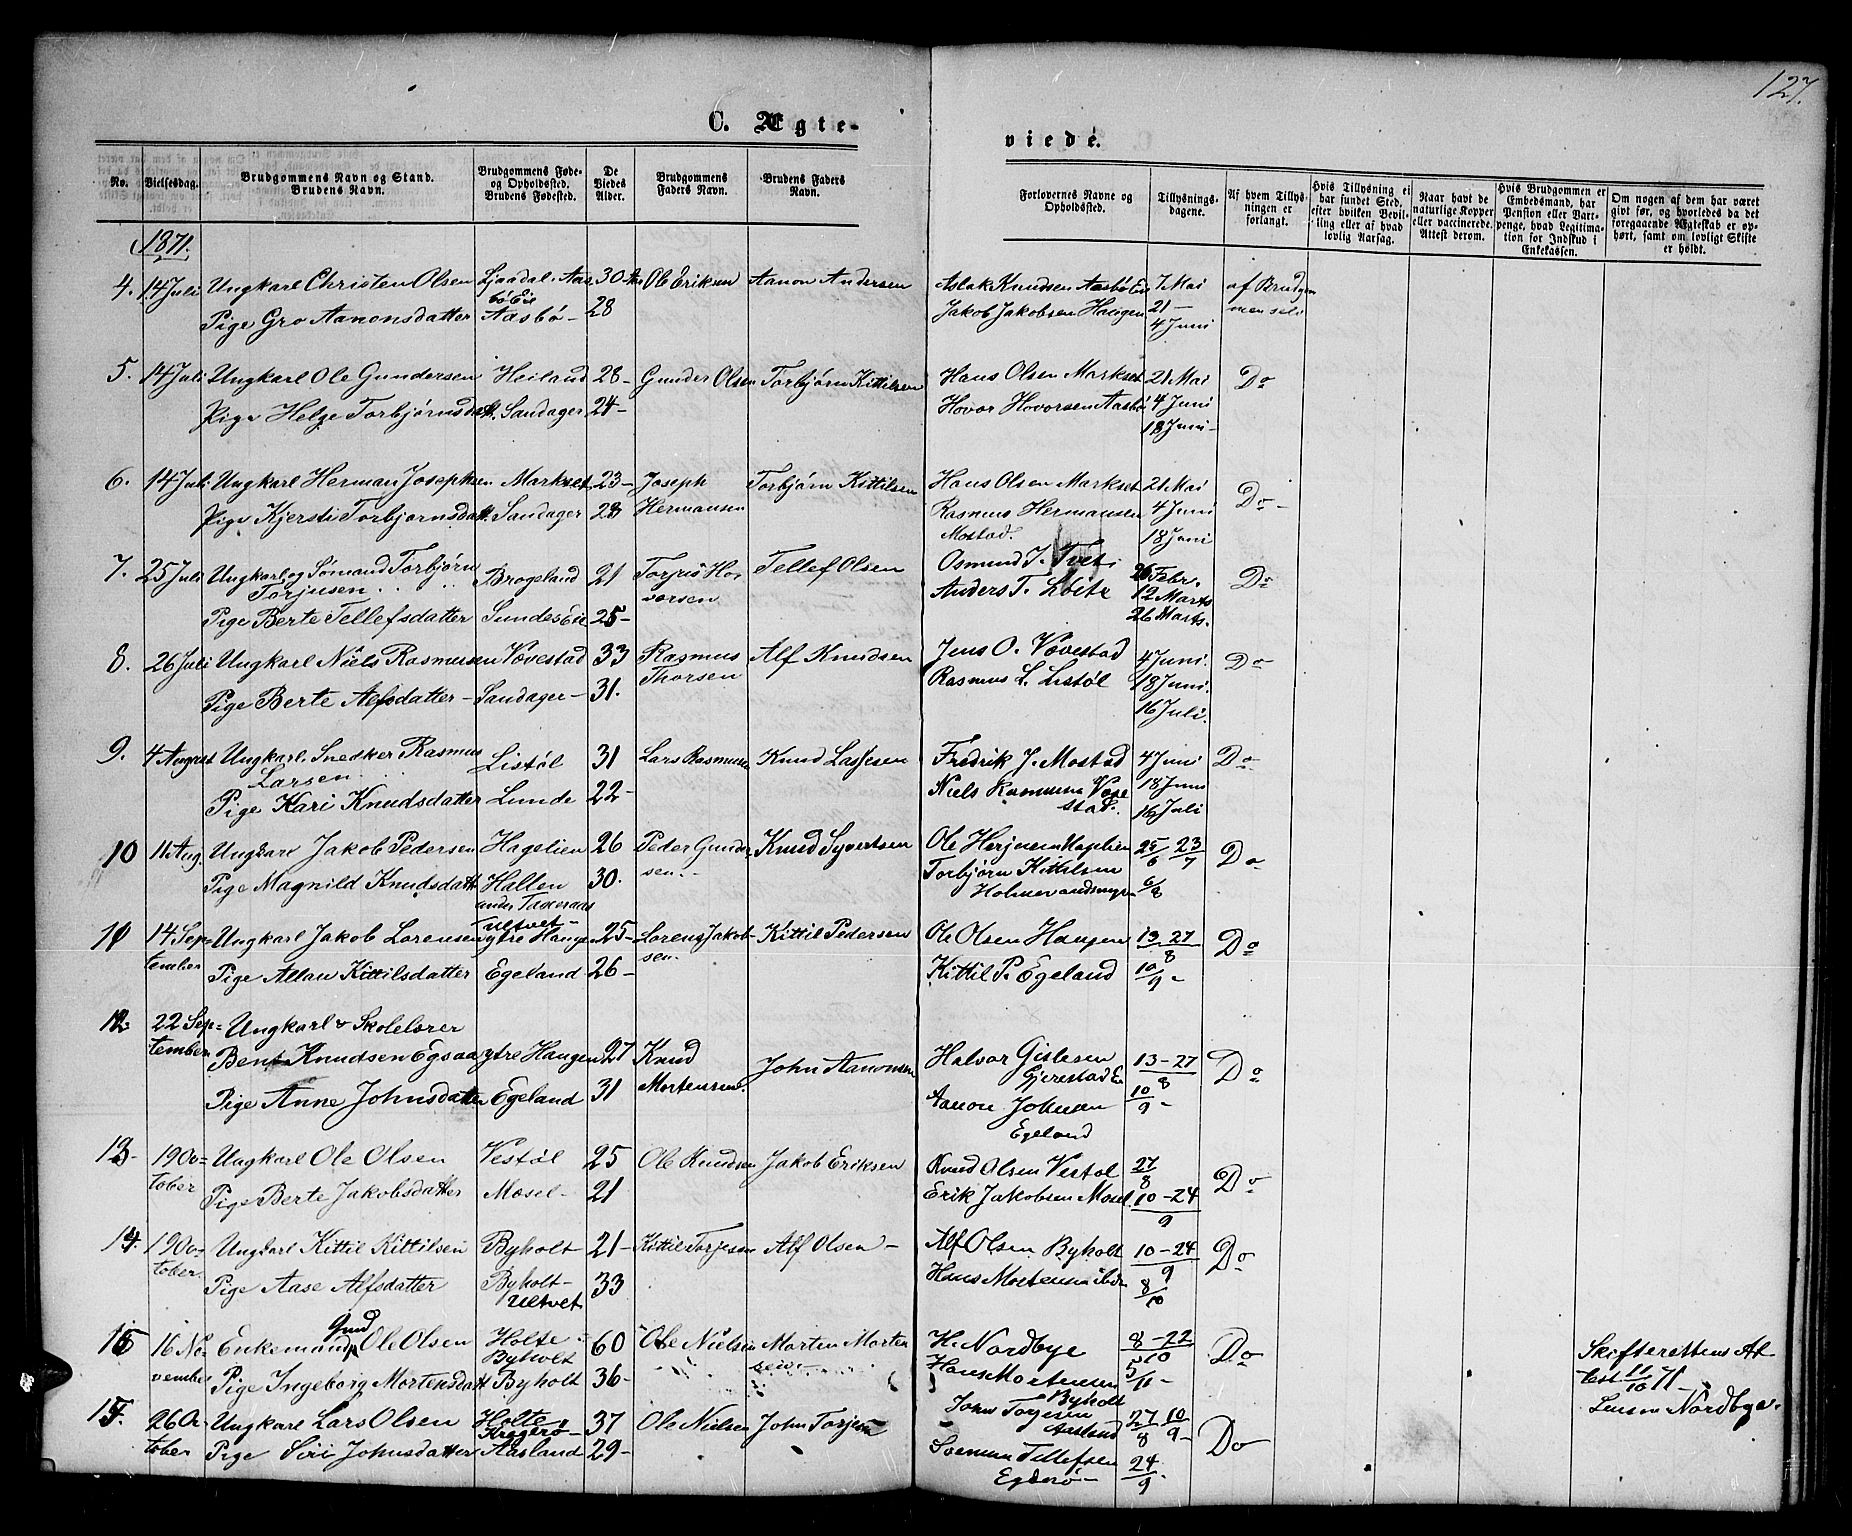 127.
C. Ægte-
viede.
No.
Vielsesdag.
Brudgommens Navn og Stand.
Brudens Navn.
Brudgommens Føde-
og Opholdsted.
Brudens Fødested.
De
Viedes
Alder.
Brudgommens
Faders Navn.
Brudens Faders
Navn.
Forlovernes Navne og
Opholdsted.
Tillysnings-
dagene.
Af hvem Tillys-
ningen er
forlangt.
Hvis Tillysning ei
har fundet Sted,
efter hvilken Bevil-
ling eller af hvad
lovlig Aarsag.
Naar havt de
naturlige Kopper
eller vaccinerede.
Attest derom.
Hvis Brudgommen er
Embedsmand, har
Pension eller Vart-
penge, hvad Legitima-
tion for Indskud i
Enkekassen.
Om nogen af dem har været
gift før, og hvorledes da det
foregaaende Ægteskab er op-
hørt, samt om lovligt Skifte
er holdt.
1871.
4. 14 Juli Ungkarl Christen Olsen Ljaadal. Aas 30 Aar Ole Eriksen Aanon Andersen Aslak Knudsen Aasbø Eie 7 Mai af Brudgom
bø Eie
Pige Gro Aanonsdatter Aasbø - 28 Jakob Jakobsen Haugen 21 - men selv
4 Juni
5. 14 Juli Ungkarl Ole Gundersen Heiland 28- Gunder Olsen Torbjørn Kittilsen Hans Olsen Markset 21 Mai Do
Pige Helge Torbjørnsdatt. Sandager 24- Hovor Hovorsen Aasbø 4 Juni
18 Juni-
6. 14 Juli Ungkarl Herman Josephsen Markset 23- Joseph Torbjørn Kittilsen Hans Olsen Markset 21 Mai Do-
Pige Kjersti Torbjørnsdatt. Sandager 28 Hermansen Rasmus Hermansen 4 Juni
Mostad. 18 Juni
7. 25 Juli Ungkarl og Sømand Torbjørn Brogeland 21 Torjus Ho- Tellef Olsen Osmund J. Tveti 26 Febr. Do
Torjusen vorsen Anders T. Løite 12 Marts
Pige Berte Tellefsdatter Sundes Eie 25- 26 Marts.
8. 26 Juli Ungkarl Niels Rasmussen Vævestad 33 Rasmus Alf Knudsen Jens O. Vævestad 4 Juni. Do
Thorsen Rasmus L. Listøl 18 Juni.
Pige Berte Alfsdatter - Sandager- 31. 16 Juli.
9. 4 August Ungkarl Snedker Rasmus Listøl 31 Lars Rasmussen Knud Lassesen Fredrik J. Mostad 4 Juni Do
Larsen
Pige Kari Knudsdatter Lunde 22- Niels Rasmussen Væve 18 Juni
stad. 16 Juli
10 11 Aug. Ungkarl Jakob Pedersen Hagelien 26 Peder Gunder- Knud Syvertsen Ole Herjusen 25/6 23/7 Do
sen. Torbjørn Kittilsen
Pige Magnild Knudsdatt Hallen 30. 6/8
under
11 14 Sep= Ungkarl Jakob Lorensen Ultvet- 25- Lorens Jakob- Kittil Pedersen Ole Olsen Haugen 13-27/8 Do
ytre Haugen
tember Pige Allau Kittilsdatter Egeland 26- sen. Kittil P. Egeland 10/9-
12- 22 Sep= Ungkarl & Skolelærer
tember Bent Knudsen Egsaa ytre Haugen 27 Knud John Aanonsen Halvor Gislesen 13-27/8 Do
Gjerestad E
Pige Anne Johnsdatter Egeland 31 Mortensen. Aanon Johnsen 10/9-
Egeland
13- 19 Oc= Ungkarl Ole Olsen Vestøl 25 Ole Knudsen Jakob Eriksen Knud Olsen Vestøl 27/8 Do
tober Pige Berte Jakobsdatter Mæsel- 21 Erik Jakobsen Mæsel 10-24/9
14. 19 Oc= Ungkarl Kittil Kittilsen Byholt 21- Kittil Torjesen Alf Olsen - Alf Olsen Byholt 10-24/9 Do
tober. Pige Aase Alfsdatter Byholt- 33 Hans Mortensen ibdn 8/10
Ultvet
15 16 No- Enkemand Gmd Ole Olsen Holte- 60 Ole Nielsen Morten Morten H. Nordbye 8-22/10 Do Skifterettens At
Byholt sen. test 11/10 71-
vember Pige Ingeborg Mortensdatt Byholt 36- Hans Mortensen 5/11- Lensm Nordbye.
Byholt
15. 26 Oc Ungkarl Lars Olsen Holte, 37 Ole Nielsen John Torjesen John Torjesen 27/8 10/9- Do
Kragerø- Aasland
tober Pige Siri Johnsdatter Aasland 29- Soemun Tellefsen 24/9-
Egderø-